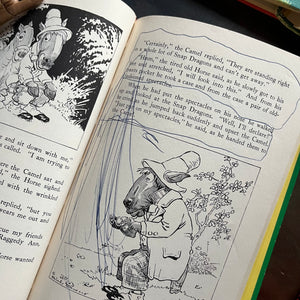 e and sit down with me,"
called. "I am trying to
ere the Camel sat and
," the Horse sighed
d with the wrinkled
replied, "but you
years me out and
cue my friends
Raggedy Ann.
Horse wanted
"Certainly," the Camel replied, "They are standing
in a whole lot of Snap Dragons and can't get away."
"Hmm," the tired old Horse said, as he slowly got to his
feet and stretched, "I will look into this." And from his
pocket he took a case and from the case a pair of old
When he had put the spectacles on his nose he walked
at the Snap Dragons. "Well, I'll
as he jumped back suddenly and upset the Camel.
"Just put on my spectacles," he said, as he handed them to